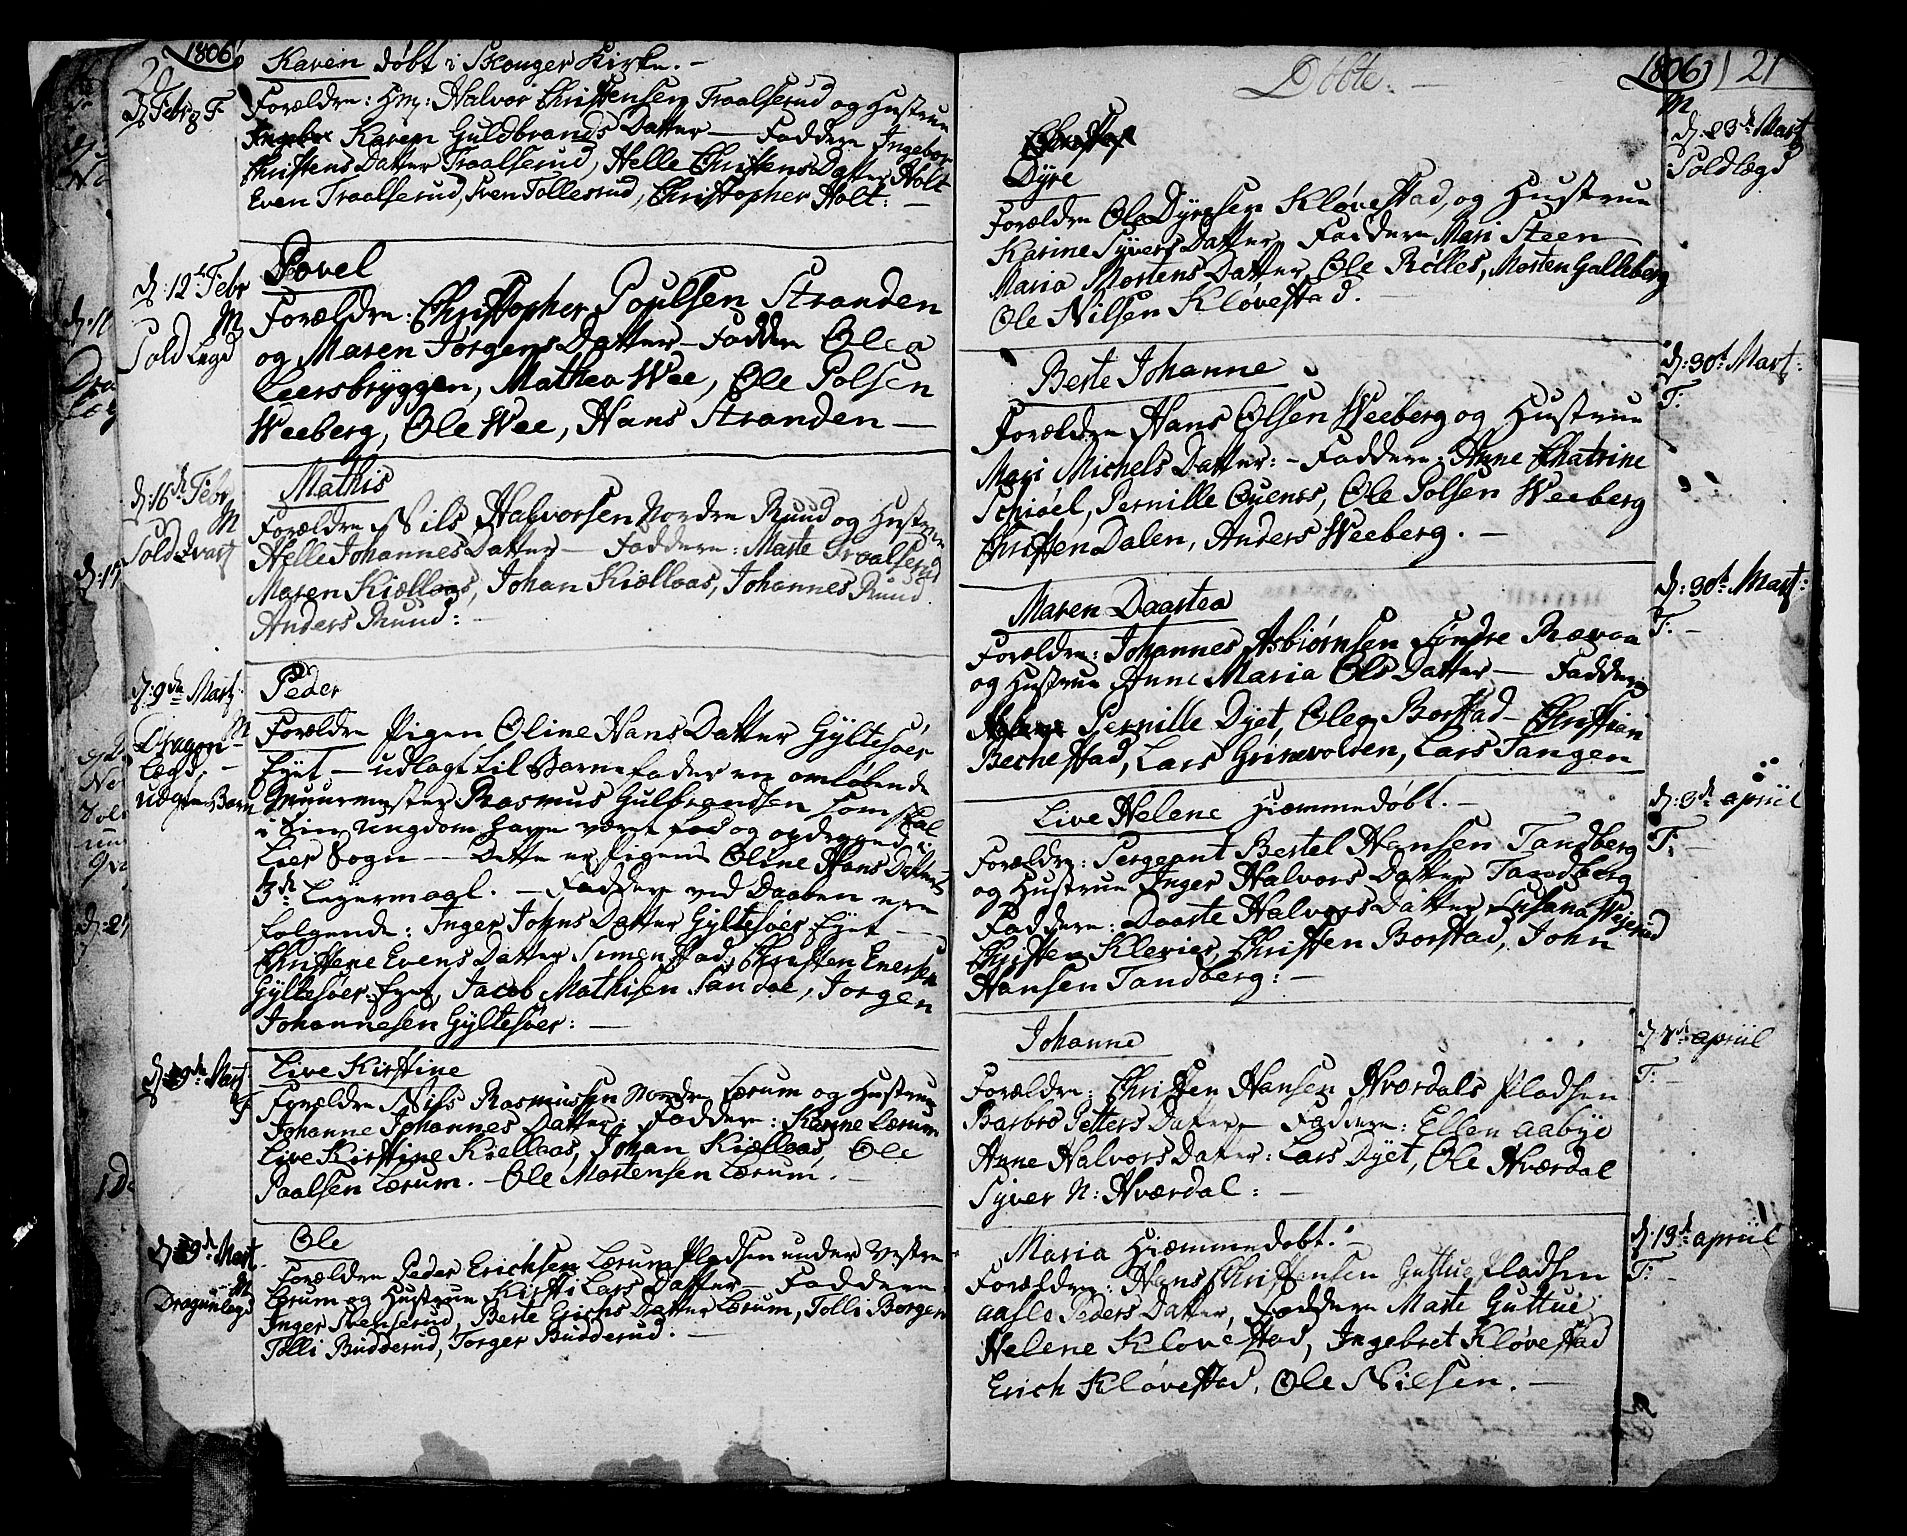 1806
Karen døbt i Skouger Kirke. -
D: Febr F.
Forældre: Hr: Halvor Christensen Traalserud og Hustrue
Karen Guldbrands Datter - Faddere Ingebor
Christens Datter Traalserud, Helle Christens Datter Holt
Even Traalserud, Sven Tollesrud, Christopher Holt: -
d: 12t Febr
M
Sold Legd
Povel
Forældre: Christopher Poulsen Stranden
og Maren Jørgens Datter - Fadder Olea
Leersbryggen, Mathea Wee, Ole Polsen
Weeberg, Ole Wee, Hans Stranden -
d: 16d Febr
M
Sold Qvart
Mathis
Forældre Nils Halvorsen Nordre Ruud og Hustrue
Helle Johannes Datter - Faddere: Marte Traalserud
Maren Kiøllaas, Johan Kiøllaas, Johannes Ruud
Anders Ruud: -
d: 9de Mart:
M
Dragon
Lægd, -
uægte Barn
Peder
Forældre Pigen Oline Hans Datter Gyltesøer
Eyet - udlagt til Barnefader en omløbende
Muurmester Rasmus Gulbrandsen som skal
i sin ungdom have været fød og opdraged i
Lier Sogn - Dette er Pigens Oline Hans Datters
3de Leyermaal. - Faddere ved Daaben ere
følgende: Inger Johns Datter Gyltesøer Eyet -
Christene Evens Datter Simenstad, Christen Enersen
Gyltesøer Eyet, Jacob Mathisen Sandae, Jørgen
Johannesen Gyltesøer: -
d: 9de Mart
F
Live Kirstine
Forældre Nils Rasmussen Nordre Lærum og Hustrue
Johanne Johannes Datter, Faddere: Karine Lærum
Live Kirstine Kiøllaas, Johan Kiøllaas, Ole
Paalsen Lærum. - Ole Mortensen Lærum. -
M
Dragunlegd
Ole
Forældre Peder Erichsen Lærum Pladsen under Vestre
Lærum og Hustrue Kirsti Lars Datter - Faddere
Inger Svenserud, Berte Erichs Datter Lærum, Tolli Borgen
Tolli Budderud, Torger Budderud. -
Døbte. -
1806 21
M
d: 23d Mart
Soldlægd
Dyre
Forældre Ole Dyresen Kløvestad, og Hustrue
Karine Syvers Datter, Faddere Mari Steen
Maria Mortens Datter, Ole Rølles, Morten Galleberg
Ole Nilsen Kløvestad. -
d: 30t Mart:
F:
Berte Johanne
Forældre Hans Olsen Weeberg og Hustrue
Mari Michels Datter: - Faddere: Anne Chatrine
Schiøel, Pernille Qvens, Ole Polsen Weeberg
Christen Dalen, Anders Weeberg. -
d: 30t Mart:
F: -
Maren Daartea
Forældre: Johannes Asbiørnsen Søndre Revaa
og Hustrue Anne Maria Ols Datter - Faddere
Pernille Dyet, Olea Borstad - Christian
Bechestad, Lars Grimsvolden, Lars Tangen
d: 3d apriil
F:
Live Helene hiemmedøbt. -
Forældre: Sergeant Bertel Hansen Tandberg
og Hustrue Inger Halvors Datter Tandberg
Faddere: Daarte Halvors Datter, Susana Wejerud
Christen Klevier, Christen Borstad, John
Hansen Tandberg: -
d: 7d apriil
F: -
Johanne
Forældre: Christen Hansen Hværdals Pladsen
Barbro Petters Datter - Faddere: Ellen aabye
Anne Halvors Datter: Lars Dyet, Ole Hværdal
Syver N: Hværdal: -
d: 13d apriil
F: -
Maria Hiemmedøbt: -
Forældre: Hans Christensen Guttue Pladsen
aasle Peders Datter, Faddere Marte Guttue
Helene Kløvestad, Ingebret Kløvestad
Erich Kløvestad, Ole Nilsen. -